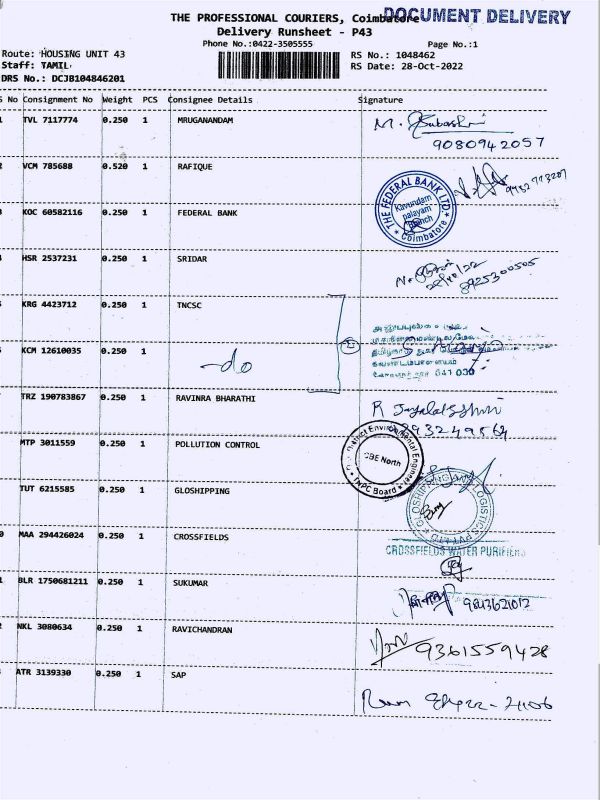 DOCUMENT DELIVERY
THE PROFESSIONAL COURIERS, Coimbatore
Delivery Runsheet - P43
Phone No.:0422-3505555 Page No.:1
Route: HOUSING UNIT 43 RS No.: 1048462
Staff: TAMIL. RS Date: 28-Oct-2022
DRS No.: DCJB104846201
S No Consignment No Weight PCS Consignee Details Signature
TVL 7117774 0.250 1 MRUGANANDAM M. Subashri
9080942057
VCM 785688 0.520 1 RAFIQUE
THE FEDERAL BANK LTD. Kavundam palayam Branch Coimbatore
KOC 60582116 0.250 1 FEDERAL BANK
HSR 2537231 0.250 1 SRIDAR
8925300505
KRG 4423712 0.250 1 TNCSC
KCM 12610035 0.250 1 -do
641 030
TRZ 190783867 0.250 1 RAVINRA BHARATHI R
MTP 3011559 0.250 1 POLLUTION CONTROL
District Environmental Engineer CBE North TNPC Board
TUT 6215585 0.250 1 GLOSHIPPING
GLOSHIPPING LOGISTICS PVT LTD
MAA 294426024 0.250 1 CROSSFIELDS CROSSFIELDS WATER PURIFIERS
BLR 1750681211 0.250 1 SUKUMAR 9843621012
NKL 3080634 0.250 1 RAVICHANDRAN 9361559428
ATR 3139330 0.250 1 SAP